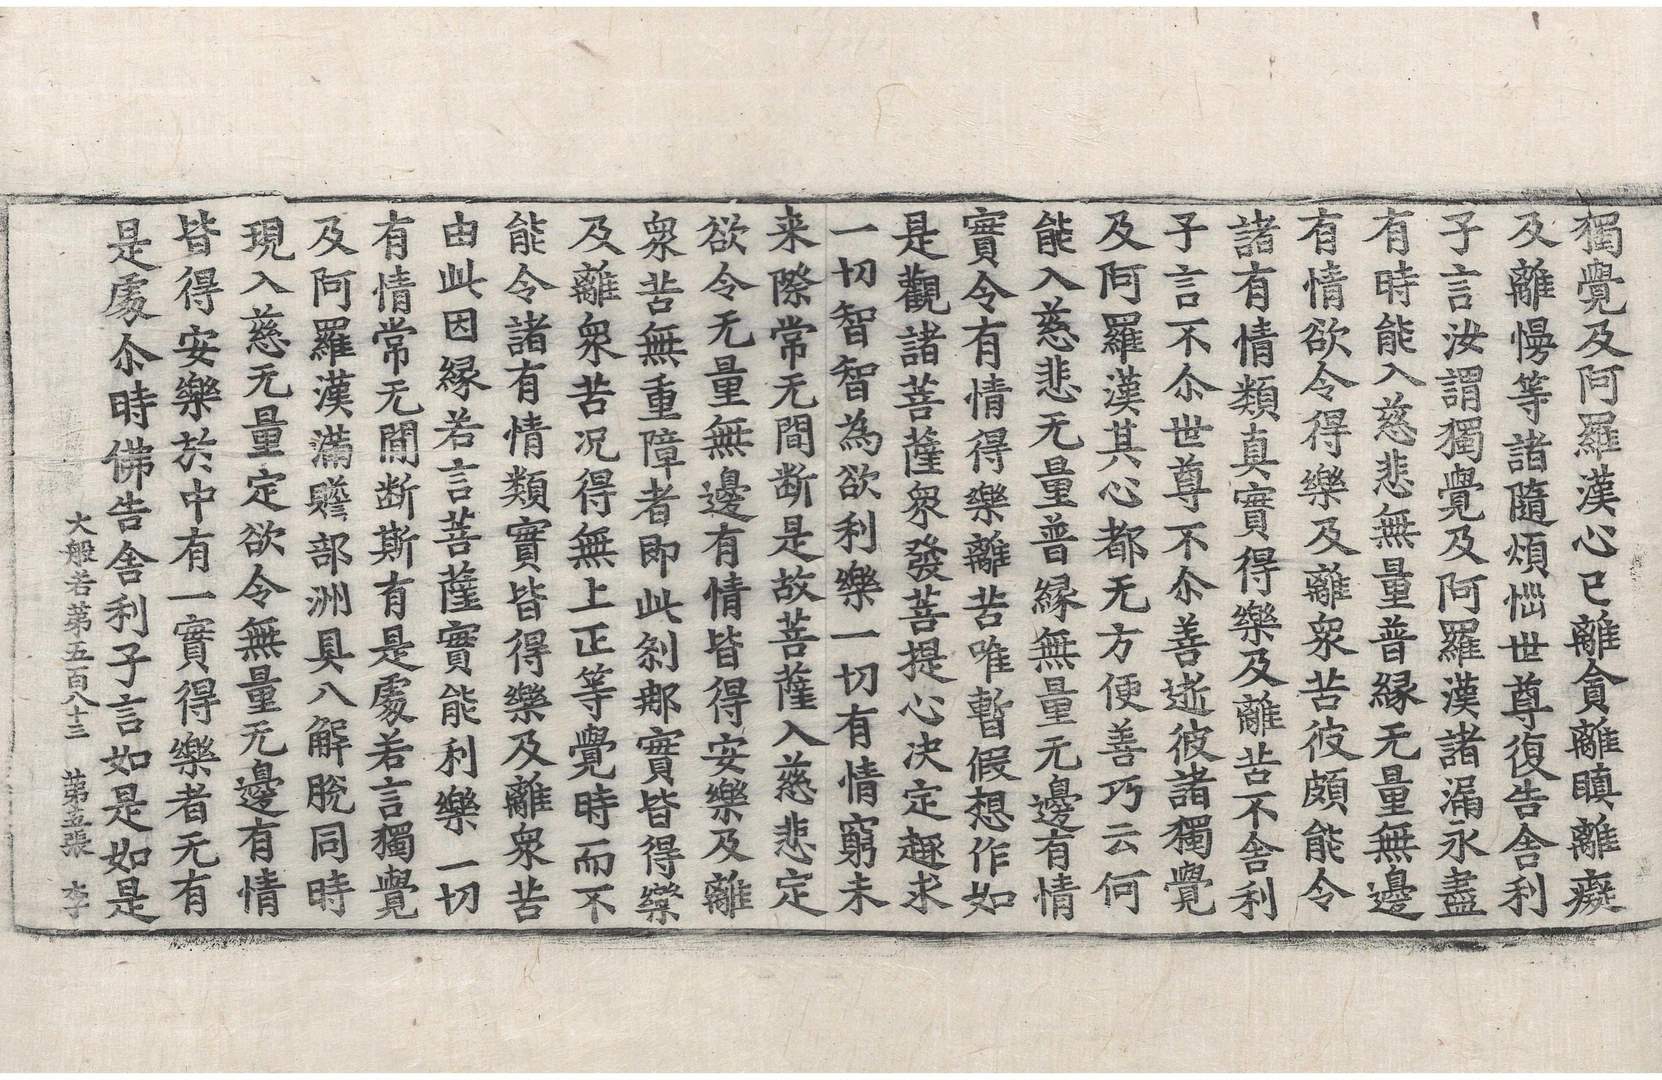 獨覺及阿羅漢心已離貪離瞋離癡
及離慢等諸隨煩惱世尊復告舍利
子言汝謂獨覺及阿羅漢諸漏永盡
有時能入慈悲無量普緣无量無邊
有情欲令得樂及離衆苦彼頗能令
諸有情類真實得樂及離苦不舍利
子言不尒世尊不尒善逝彼諸獨覺
及阿羅漢其心都无方便善巧云何
能入慈悲无量普緣無量无邊有情
實令有情得樂離苦唯暫假想作如
是觀諸菩薩衆發菩提心决定趣求
一切智智為欲利樂一切有情窮未
来際常无間断是故菩薩入慈悲定
欲令无量無邊有情皆得安樂及離
衆苦無重障者即此刹那實皆得樂
及離衆苦况得無上正等覺時而不
能令諸有情類實皆得樂及離衆苦
由此因緣若言菩薩實能利樂一切
有情常无間断斯有是處若言獨覺
及阿羅漢滿贍部洲具八解脫同時
現入慈无量定欲令無量无邊有情
皆得安樂於中有一實得樂者无有
是處尒時佛告舍利子言如是如是
大般若第五百八十三 第五張 李